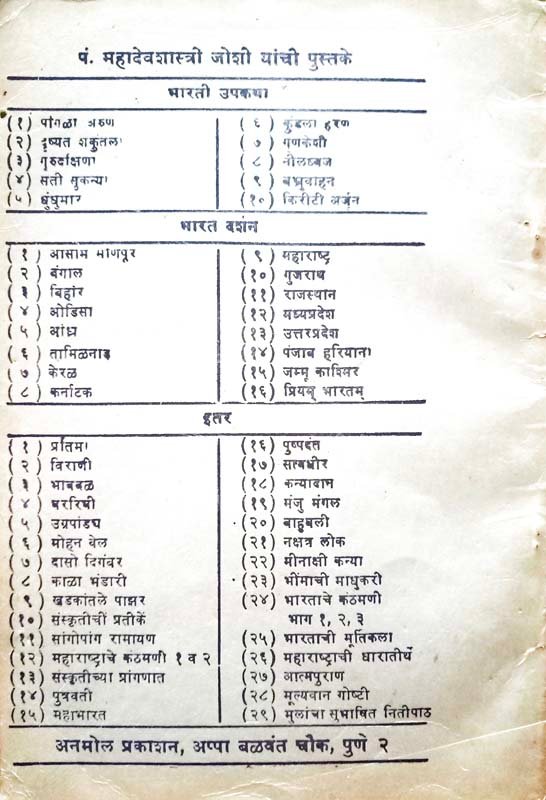 पं. महादेवशास्त्री जोशी यांची पुस्तके
भारती उपकथा
(१) पांगळा अरुण
(२) दृष्यंत शकुंतला
(३) गुरुदक्षिणा
(४) सती सुकन्या
(५) धुंधुमार
(६) कुंडला हरण
(७) गणकेशी
(८) नीलध्वज
(९) बभ्रूवाहन
(१०) किरीटी अर्जुन
भारत दर्शन
(१) आसाम माणिपूर
(२) बंगाल
(३) बिहार
(४) ओडिसा
(५) आंध्र
(६) तामिळनाडू
(७) केरळ
(८) कर्नाटक
(९) महाराष्ट्र
(१०) गुजराथ
(११) राजस्थान
(१२) मध्यप्रदेश
(१३) उत्तरप्रदेश
(१४) पंजाब हरियाना
(१५) जम्मू काश्मिर
(१६) प्रियम् भारतम्
इतर
(१) प्रतिमा
(२) विराणी
(३) भावबळ
(४) वररिची
(५) उग्रपांड्य
(६) मोहन वेल
(७) दासो दिगंबर
(८) काळा भंडारी
(९) खडकांतले पाझर
(१०) संस्कृतीचीं प्रतीकें
(११) सांगोपांग रामायण
(१२) महाराष्ट्राचे कंठमणी १ व २
(१३) संस्कृतीच्या प्रांगणात
(१४) पुत्रवती
(१५) महाभारत
(१६) पुष्पदंत
(१७) सत्वधीर
(१८) कन्यादान
(१९) मंजु मंगल
(२०) बाहुबली
(२१) नक्षत्र लोक
(२२) मीनाक्षी कन्या
(२३) भींमाची माधुकरी
(२४) भारताचे कंठमणी
भाग १, २, ३
(२५) भारताची मूर्तिकला
(२६) महाराष्ट्राची धारातीर्थे
(२७) आत्मपुराण
(२८) मूल्यवान गोष्टी
(२९) मुलांचा सुभाषित नितीपाठ
अनमोल प्रकाशन, अप्पा बळवंत चौक, पुणे २